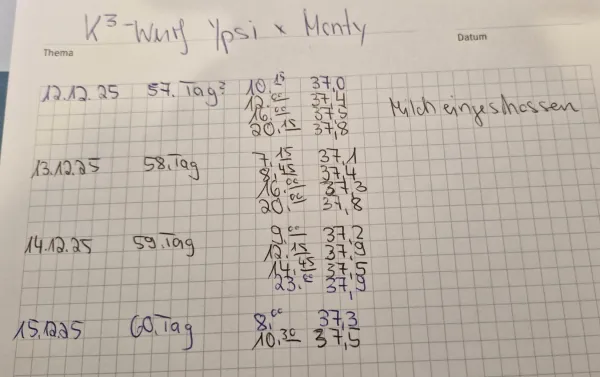 K³-Wurf Ypsi x Monty
Thema
Datum
12.12.25 57. Tag? 10.15 37,0
12.00 37,4 Milch eingeschossen
16.00 37,5
20.15 37,8
13.12.25 58. Tag 7.15 37,1
8.45 37,4
16.00 37,3
20.00 37,8
14.12.25 59. Tag 9.00 37,2
12.15 37,9
14.45 37,5
23.00 37,9
15.12.25 60. Tag 8.00 37,3
10.30 37,5